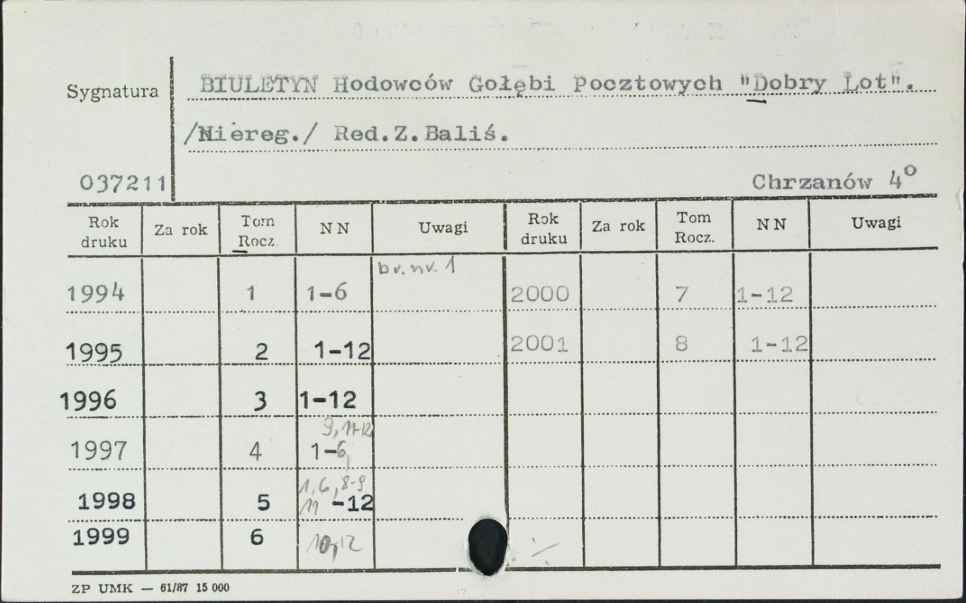 Sygnatura BIULETYN Hodowców Gołębi Pocztowych "Dobry Lot".
/Niereg./ Red.Z.Baliś.
037211 Chrzanów 4°
Rok druku Za rok Tom Rocz. NN Uwagi Rok druku Za rok Tom Rocz. NN Uwagi
br.nr. 1
1994 1 1-6 2000 7 1-12
1995 2 1-12 2001 8 1-12
1996 3 1-12
9, 11-12
1997 4 1-6,
1, 6, 8-9
1998 5 11 -12
1999 6 10, 12
ZP UMK — 61/87 15 000